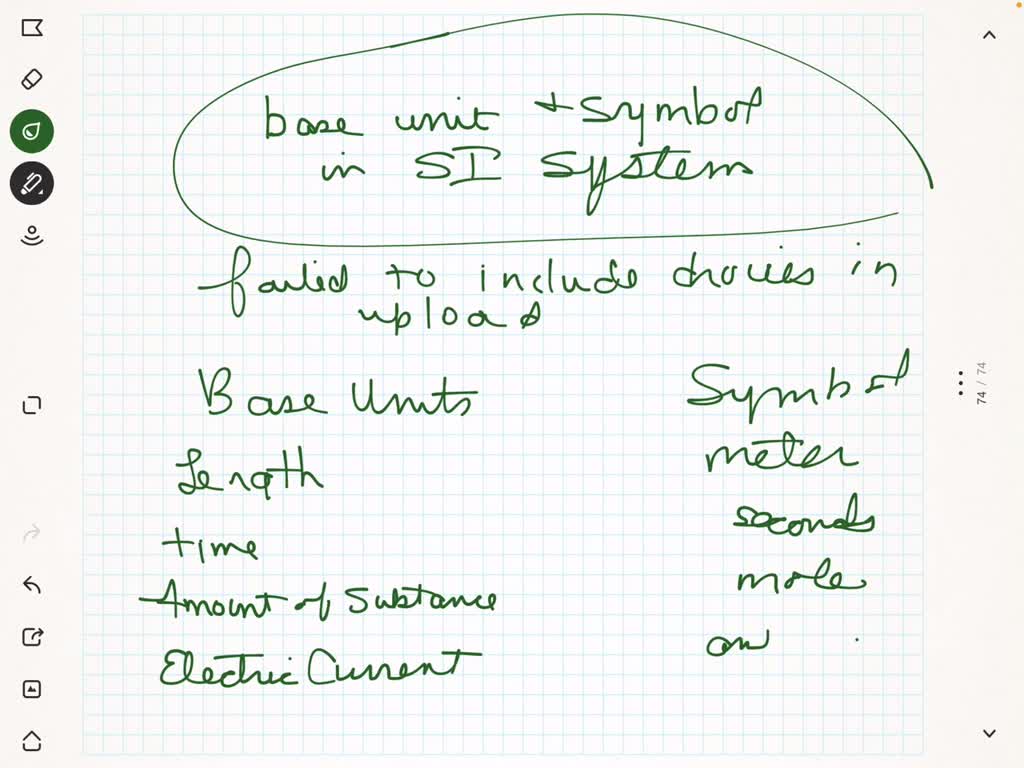 base unit + symbol
in SI System
failed to include choices in
upload
Base Units Symbol
Length meter
time seconds
Amount of Substance mole
Electric Current am
74 / 74